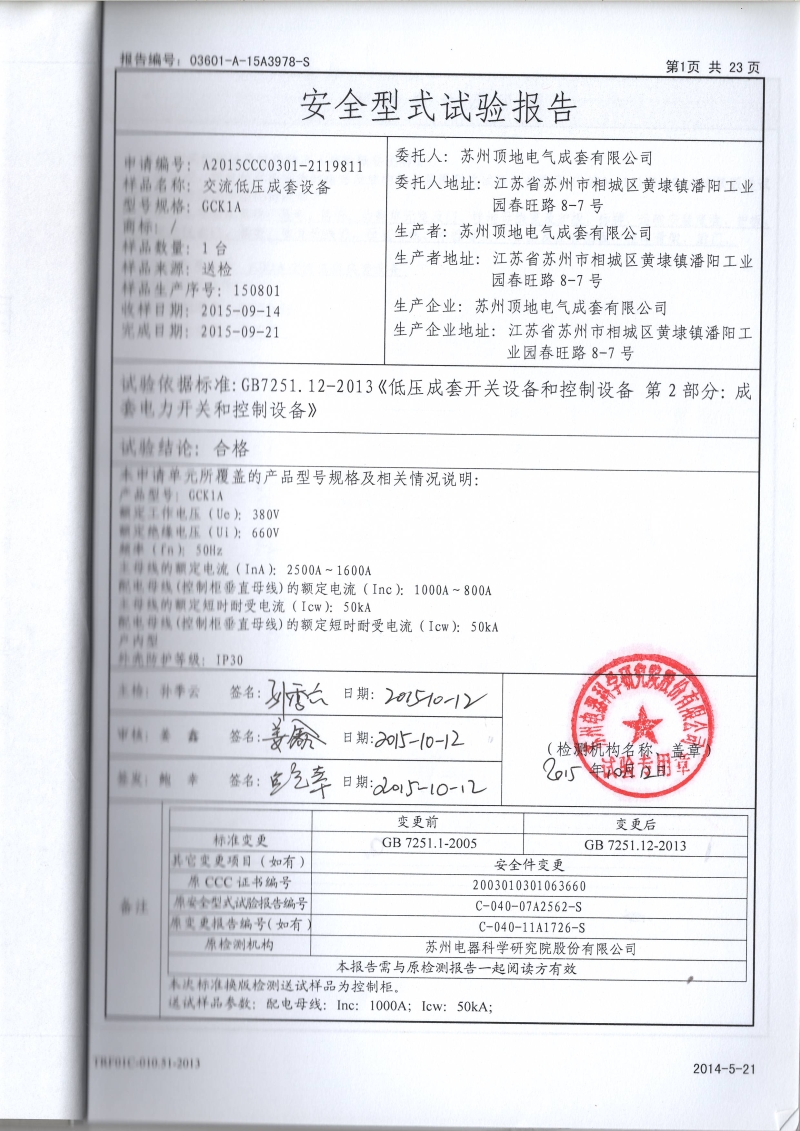 报告编号：03601-A-15A3978-S
第1页 共 23 页
安全型式试验报告
申请编号：A2015CCC0301-2119811
样品名称：交流低压成套设备
型号规格：GCK1A
商标：/
样品数量：1 台
样品来源：送检
样品生产序号：150801
收样日期：2015-09-14
完成日期：2015-09-21
委托人：苏州顶地电气成套有限公司
委托人地址：江苏省苏州市相城区黄埭镇潘阳工业
园春旺路 8-7 号
生产者：苏州顶地电气成套有限公司
生产者地址：江苏省苏州市相城区黄埭镇潘阳工业
园春旺路 8-7 号
生产企业：苏州顶地电气成套有限公司
生产企业地址：江苏省苏州市相城区黄埭镇潘阳工
业园春旺路 8-7 号
试验依据标准：GB7251.12-2013《低压成套开关设备和控制设备 第 2 部分：成
套电力开关和控制设备》
试验结论：合格
本申请单元所覆盖的产品型号规格及相关情况说明：
产品型号：GCK1A
额定工作电压（Ue）：380V
额定绝缘电压（Ui）：660V
频率（fn）：50Hz
主母线的额定电流（InA）：2500A～1600A
配电母线(控制柜垂直母线)的额定电流（Inc）：1000A～800A
主母线的额定短时耐受电流（Icw）：50kA
配电母线(控制柜垂直母线)的额定短时耐受电流（Icw）：50kA
户内型
外壳防护等级：IP30
主检：孙季云 签名： 日期：2015-10-12
审核：姜 鑫 签名：姜鑫 日期：2015-10-12
签发：鲍 幸 签名：鲍幸 日期：2015-10-12
苏州电器科学研究院股份有限公司
试验专用章
（检测机构名称、盖章）
2015 年 10 月 12 日
备注
变更前 变更后
标准变更 GB 7251.1-2005 GB 7251.12-2013
其它变更项目（如有） 安全件变更
原 CCC 证书编号 2003010301063660
原安全型式试验报告编号 C-040-07A2562-S
原变更报告编号(如有) C-040-11A1726-S
原检测机构 苏州电器科学研究院股份有限公司
本报告需与原检测报告一起阅读方有效
本次标准换版检测送试样品为控制柜。
送试样品参数：配电母线：Inc: 1000A；Icw: 50kA；
TRF01C-010.51-2013
2014-5-21